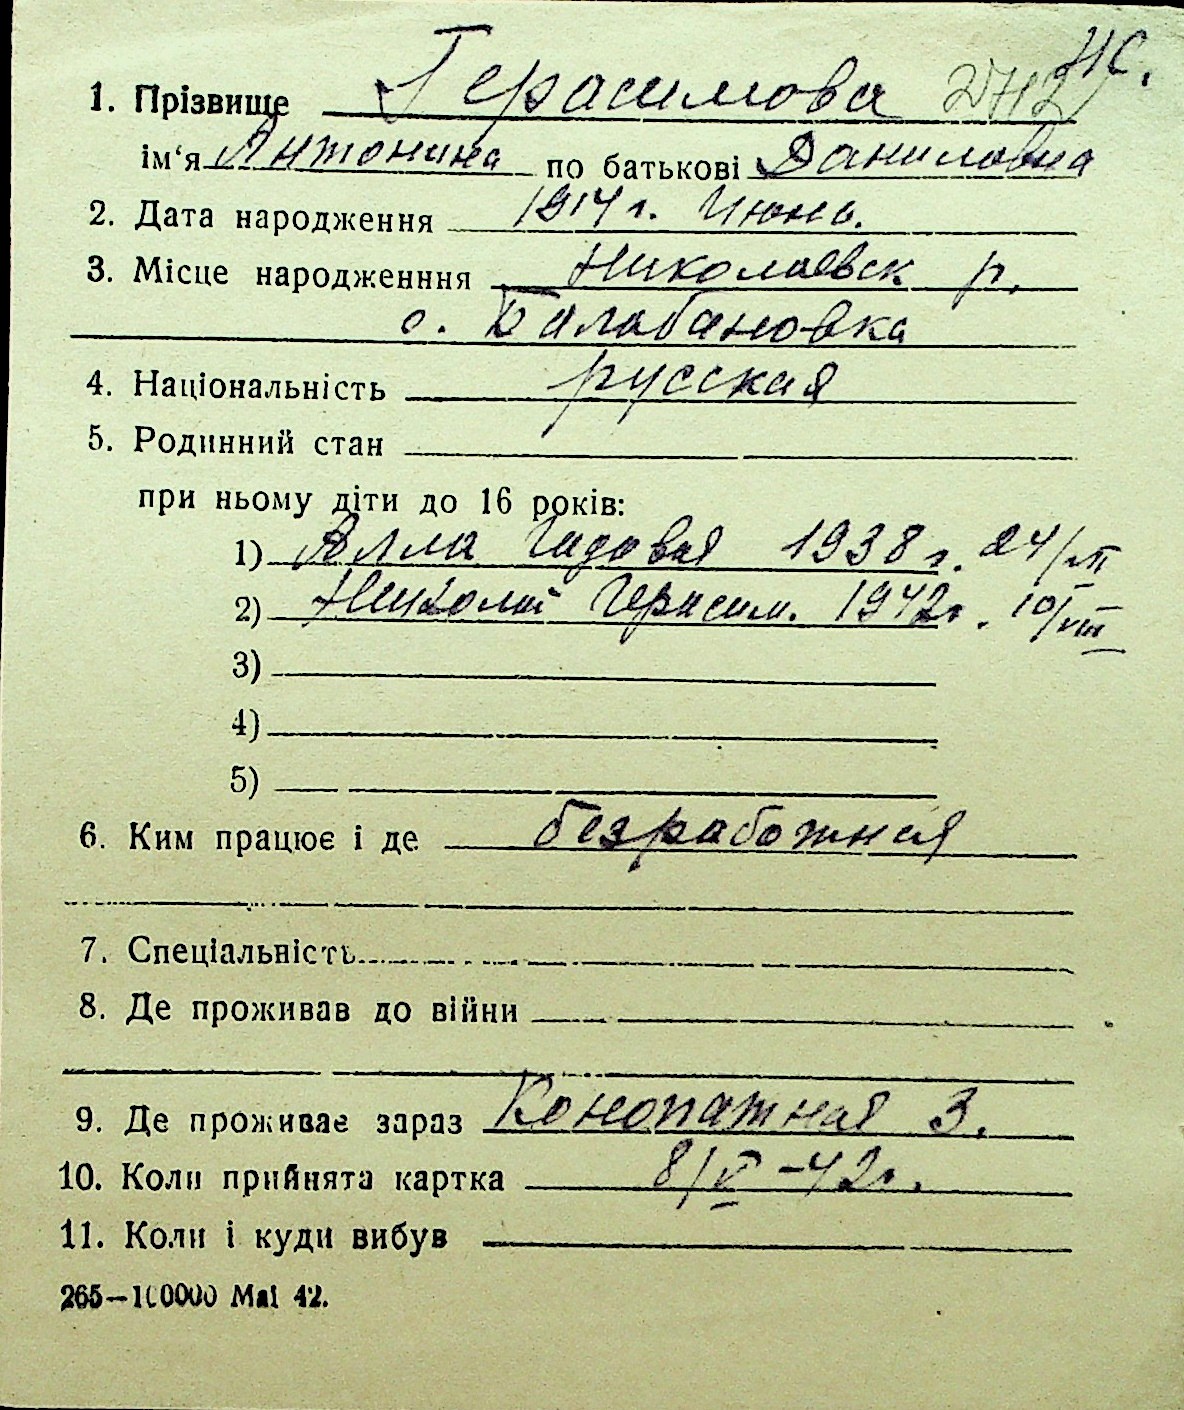 НС.
1. Прізвище Герасимова
ім‘я Антонина по батькові Даниловна
2. Дата народження 1914 г. Июнь.
3. Місце народженння Николаевск р.
с. Балабановка
4. Національність русская
5. Родинний стан
при ньому діти до 16 років:
1) Алла 1938 г. 24/
2) Николай Герасим. 1942г. 10/VIII
3)
4)
5)
6. Ким працює і де безработная
7. Спеціальність
8. Де проживав до війни
9. Де проживає зараз Конопатная 3.
10. Коли прийнята картка 8/V –42г.
11. Коли і куди вибув
265—100000 Маі 42.